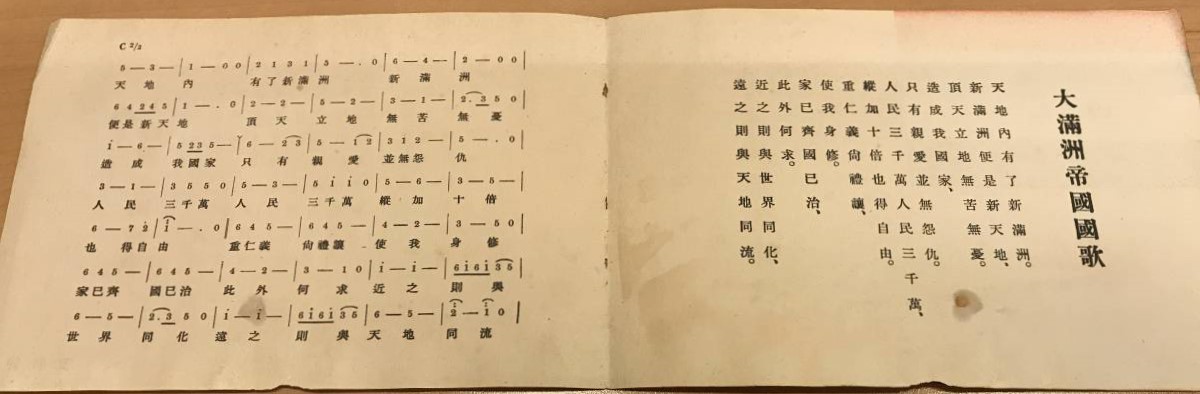 大滿洲帝國國歌
天地內有了新滿洲。
新滿洲便是新天地、
頂天立地無苦無憂。
造成我國家、
只有親愛並無怨仇。
人民三千萬人民三千萬、
縱加十倍也得自由。
重仁義尙禮讓、
使我身修。
家已齊國已治、
此外何求。
近之則與世界同化、
遠之則與天地同流。
C 2/2
5 — 3 — | 1 — 0 0 | 2 1 3 1 | 5 — . 0 | 6 — 4 — | 2 — 0 0 |
天地內 有了新滿洲 新滿洲
6 4 2 4 5 | 1 — . 0 | 2 — 2 — | 5 — 2 — | 3 — 1 — | 2 . 3 5 0 |
便是新天地 頂天立地無苦無憂
i — 6 — | 5 2 3 5 — | 6 — 2 3 | 5 — i 2 | 3 1 2 — | 5 — . 0 |
造成我國家只有親愛並無怨仇
3 — 1 — | 3 5 5 0 | 5 — 3 — | 5 i i 0 | 5 — 6 — | 3 — 5 — |
人民三千萬人民三千萬縱加十倍
6 — 7 2 | i — . 0 | 5 — 6 5 — | 6 4 5 — | 4 — 2 — | 3 — 5 0 |
也得自由 重仁義尙禮讓使我身修
6 4 5 — | 6 4 5 — | 4 — 2 — | 3 — 1 0 | i — i — | 6 i 6 i 3 5 |
家已齊國已治此外何求近之則與
6 — 5 — | 2 . 3 5 0 | i — i — | 6 i 6 i 3 5 | 6 — 5 — | 2 — i 0 |
世界同化遠之則與天地同流